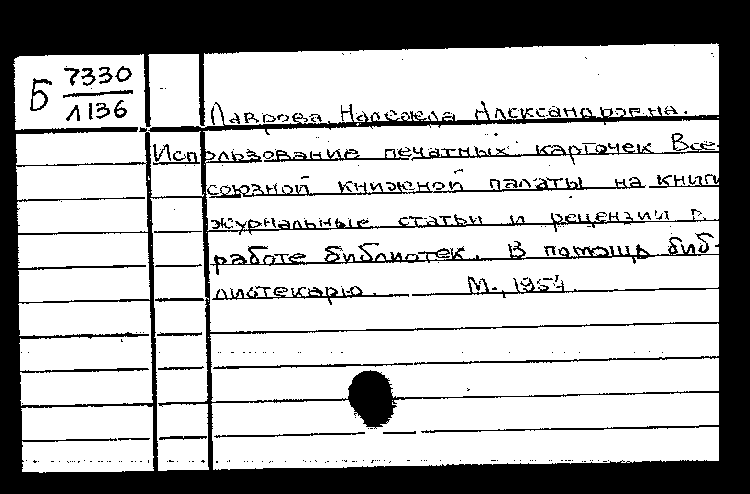 Б 7330
Л136
Лаврова, Надежда Александровна.
Использование печатных карточек Все-
союзной книжной палаты на книги
журнальные статьи и рецензии в
работе библиотек. В помощь биб-
лиотекарю. М., 1954.